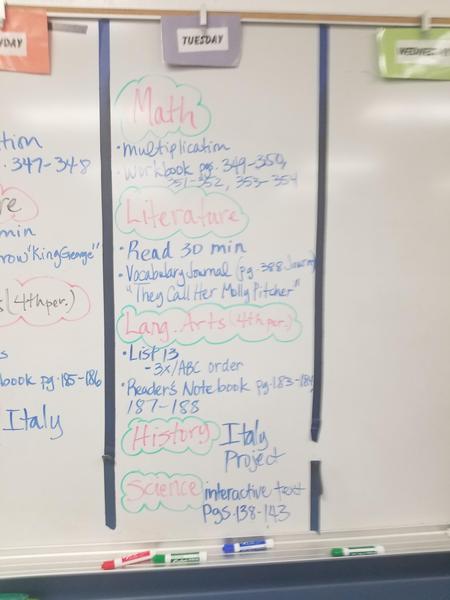 DAY
TUESDAY
WEDNESDAY
tion
. 347-348
re
min
row "King George"
(4th per.)
s
book pg. 185-186
Italy
Math
• multiplication
• workbook pgs. 349-350,
351-352, 353-354
Literature
• Read 30 min
• Vocabulary Journal (pg. 388 Journ
"They Call Her Molly Pitcher"
Lang. Arts (4th per.)
• List 13
- 3x/ABC order
• Reader's Notebook pg. 183-184,
187-188
History Italy
Project
Science interactive text
pgs. 138-143